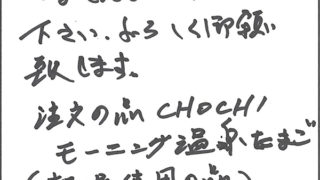 下さい。よろしく御願い
致します。
注文の品 CHOCHI
モーニング温泉たまご